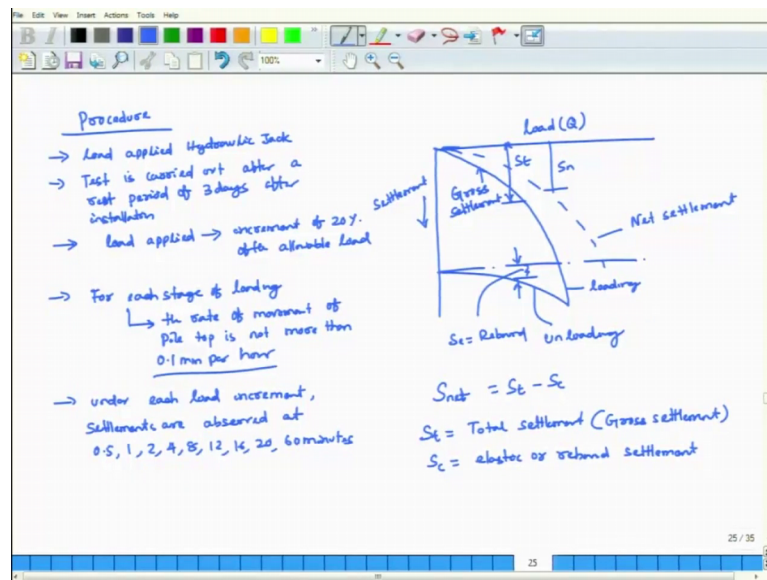 File Edit View Insert Actions Tools Help
B I
100%
Procedure
→ Load applied Hydraulic Jack
→ Test is carried out after a
rest period of 3 days after
installation
→ load applied → increment of 20%
of the allowable load
→ For each stage of loading
the rate of movement of
Pile top is not more than
0.1 mm per hour
→ under each load increment,
Settlements are observed at
0.5, 1, 2, 4, 8, 12, 16, 20, 60 minutes
Load (Q)
Settlement
St
Sn
Gross
settlement
Net settlement
loading
Se = Rebound
Unloading
Snet = St - Se
St = Total settlement (Gross settlement)
Se = elastic or rebound settlement
25 / 35
25